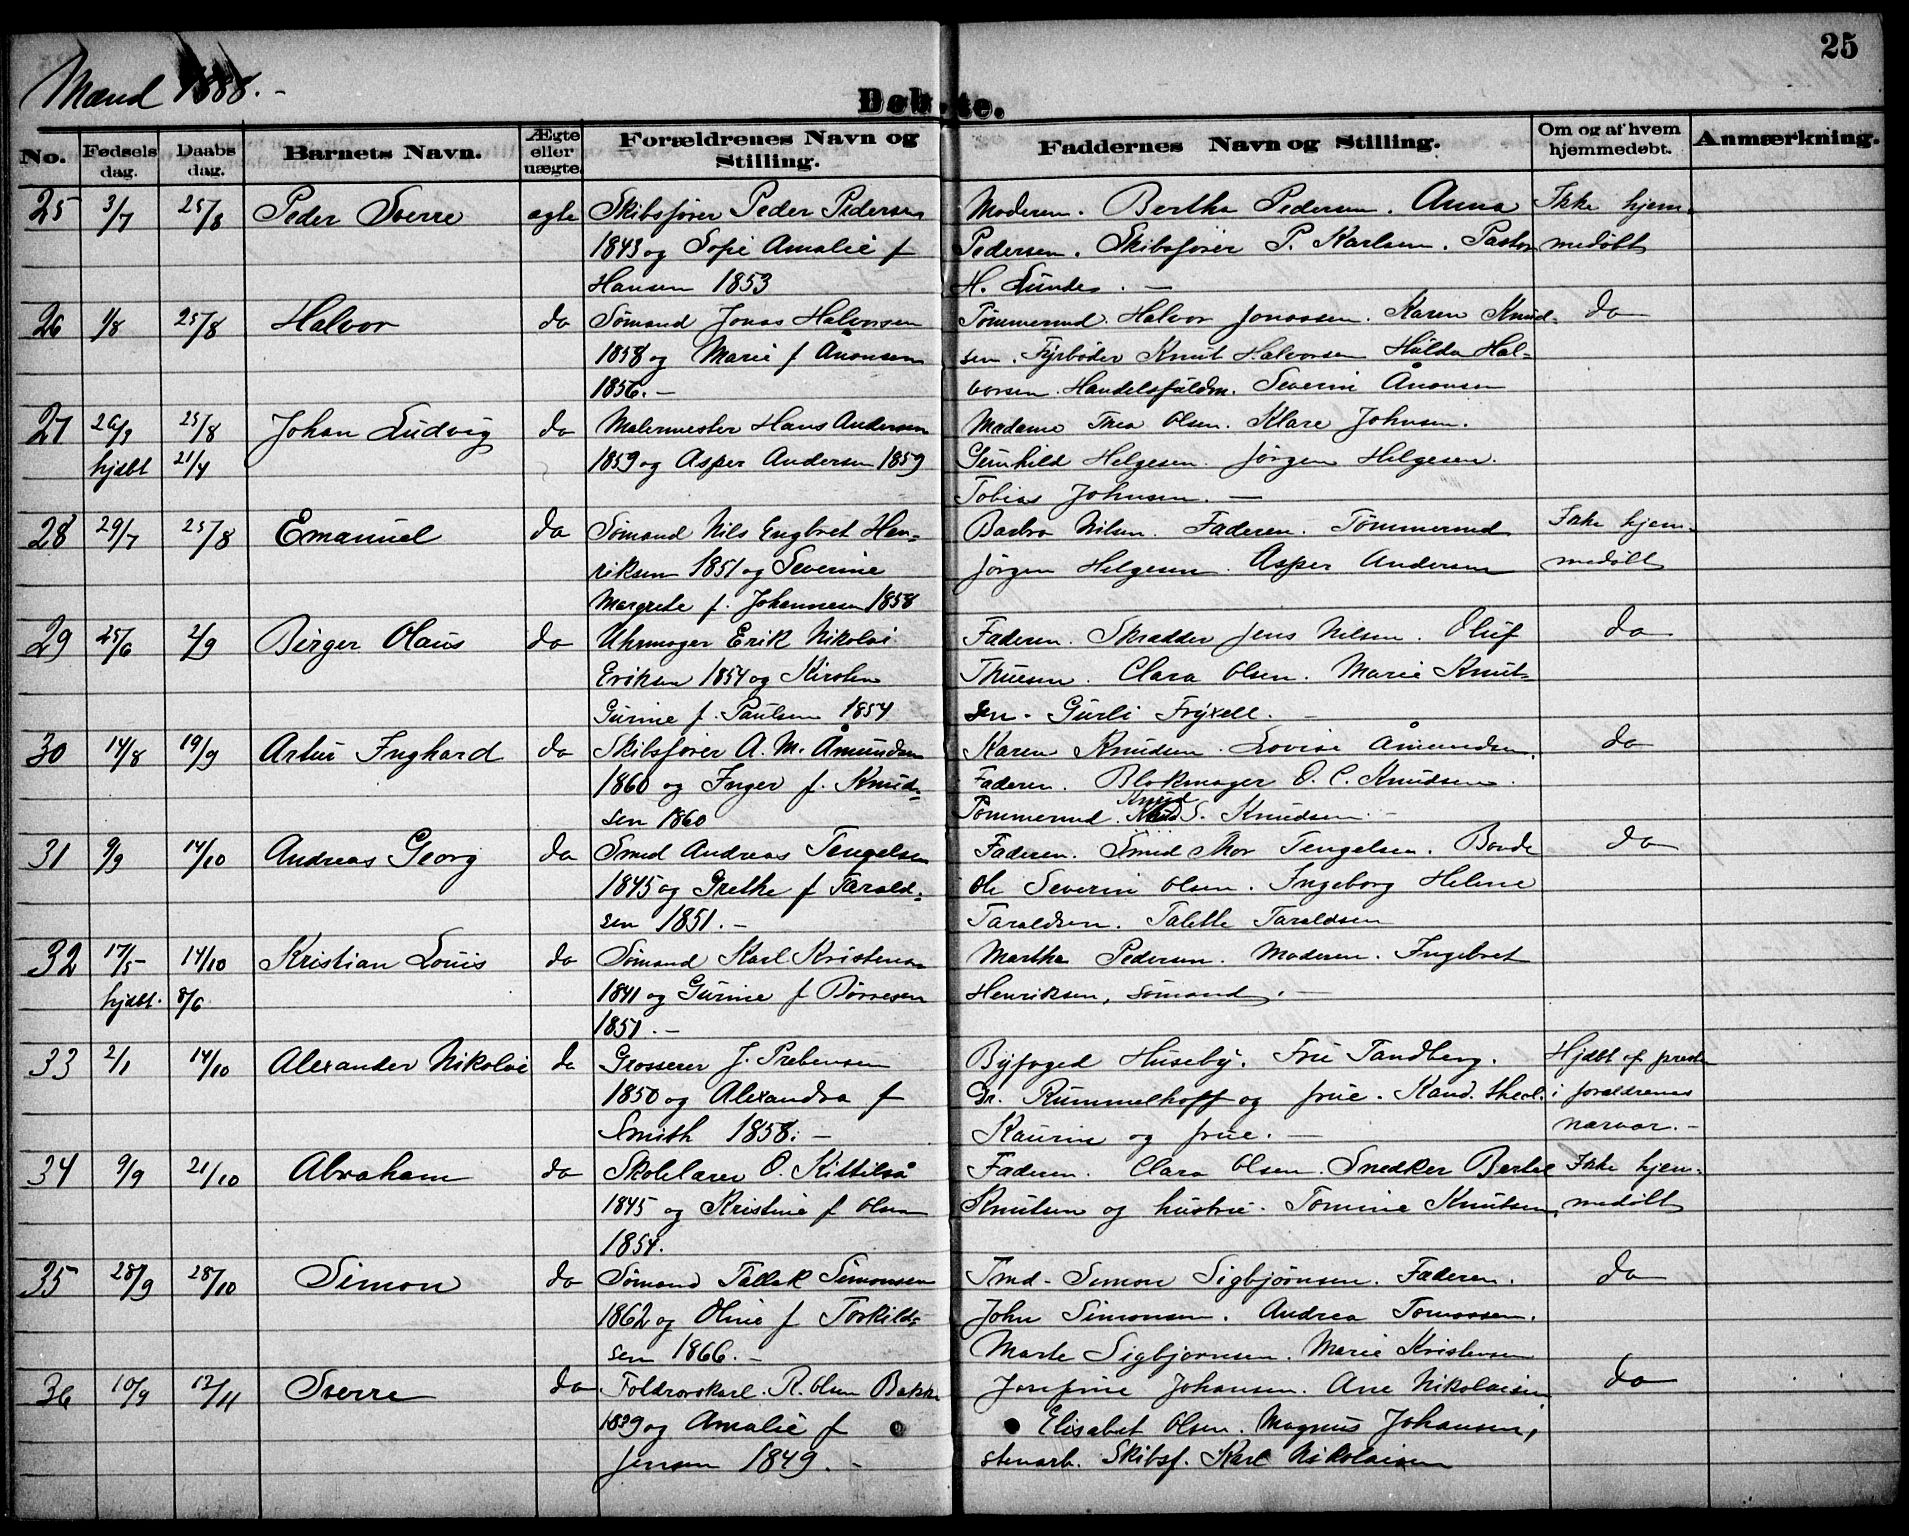 25
Mænd 1888. -
Døbte.
No.
Fødsels dag.
Daabs dag.
Barnets Navn.
Ægte eller uægte.
Forældrenes Navn og Stilling.
Faddernes Navn og Stilling.
Om og af hvem hjemmedøbt.
Anmærkning.
25 3/7 25/8 Peder Sverre ægte Skibsfører Peder Pedersen Moderen. Bertha Pedersen. Anna Ikke hjem-
1843 og Sofie Amalie f Pedersen. Skibsfører P. Karlsen. Pastor medøbt
Hansen 1853 H. Lunde. —
26 1/8 25/8 Halvor do Sømand Jonas Halvorsen Tømmermd. Halvor Jonassen. Karen Knud- do
1858 og Marie f Ånonsen sen. Fyrbøder Knut Halvorsen Hulda Hal-
1856. - vorsen. Handelsfuldm. Severin Ånonsen
27 26/3 25/8 Johan Ludvig do Malermester Hans Andersen Madame Thea Olsen. Klare Johnsen.
hjdbt 21/4 1859 og Asper Andersen 1859 Gunhild Helgesen. Jørgen Helgesen.
Tobias Johnsen. —
28 29/7 25/8 Emanuel do Sømand Nils Engbret Hen- Barbro Nilsen. Faderen. Tømmermd Ikke hjem-
riksen 1851 og Severine Jørgen Helgesen. Asper Andersen medøbt
Margrete f. Johannesen 1858
29 25/6 2/9 Birger Olaus do Uhrmager Erik Nikolai Faderen. Skrædder Jens Nilsen. Oluf do
Eriksen 1854 og Kirsten Thuesen. Clara Olsen. Marie Knut-
Gurine f. Paulsen 1854 sen. Gurli Fryxell. -
30 14/8 19/9 Artur Inghard do Skibsfører A. M. Åmundsen Karen Knudsen. Lovise Åmundsen. do
1860 og Inger f. Knud- Faderen. Blokmager O. C. Knudsen.
sen 1860 Tømmermd. Knud S. Knudsen. -
31 9/9 14/10 Andreas Georg do Smed Andreas Tengelsen Faderen. Smed Mor Tengelsen. Bonde do
1845 og Grethe f Tarald- Ole Severin Olsen. Ingeborg Helene
sen 1851. - Taraldsen. Talette Taraldsen
32 17/5 14/10 Kristian Louis do Sømand Karl Kristensen Martha Pedersen. Moderen. Ingebret
hjdbt. 8/6 1841 og Gurine f Børresen Henriksen, sømand. -
1851. -
33 2/1 14/10 Alexander Nikolai do Grosserer J. Prebensen Byfoged Huseby. Frue Tandberg. Hjdbt af presten
1850 og Alexandra f Dr. Rummelhoff og frue. Kand. theol. i forældrenes
Smith 1858. - Kaurin og frue. — nærvær. -
34 9/9 21/10 Abraham do Skolelærer O. Kittilså Faderen. Clara Olsen. Snedker Bertel Ikke hjem-
1845 og Kristine f Olsen Knutsen og hustru. Tomine Knutsen. medøbt
1854.
35 28/9 28/10 Simon do Sømand Tallak Simonsen Tmd. Simon Sigbjørnsen. Faderen. do
1862 og Oline f Torkild- John Simonsen. Andrea Tomassen.
sen 1866. - Marte Sigbjørnsen. Marie Kristensen
36 10/9 12/11 Sverre do Toldrorskarl. R. Olsen Bakke Josefine Johansen. Ane Nikolaisen do
1839 og Amalie f Elisabet Olsen. Magnus Johansen,
Jensen 1849. - stenarb. Skibsf. Karl Nikolaisen